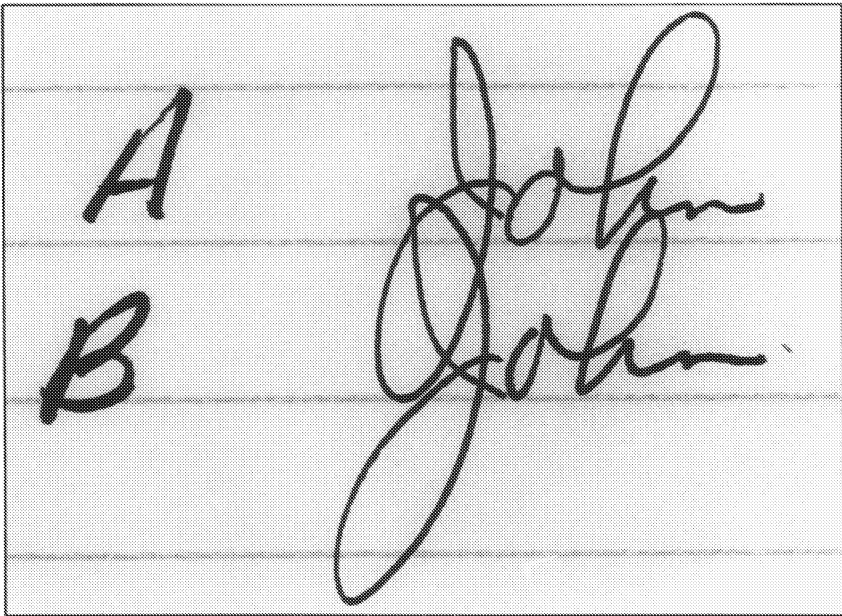 A John
B John